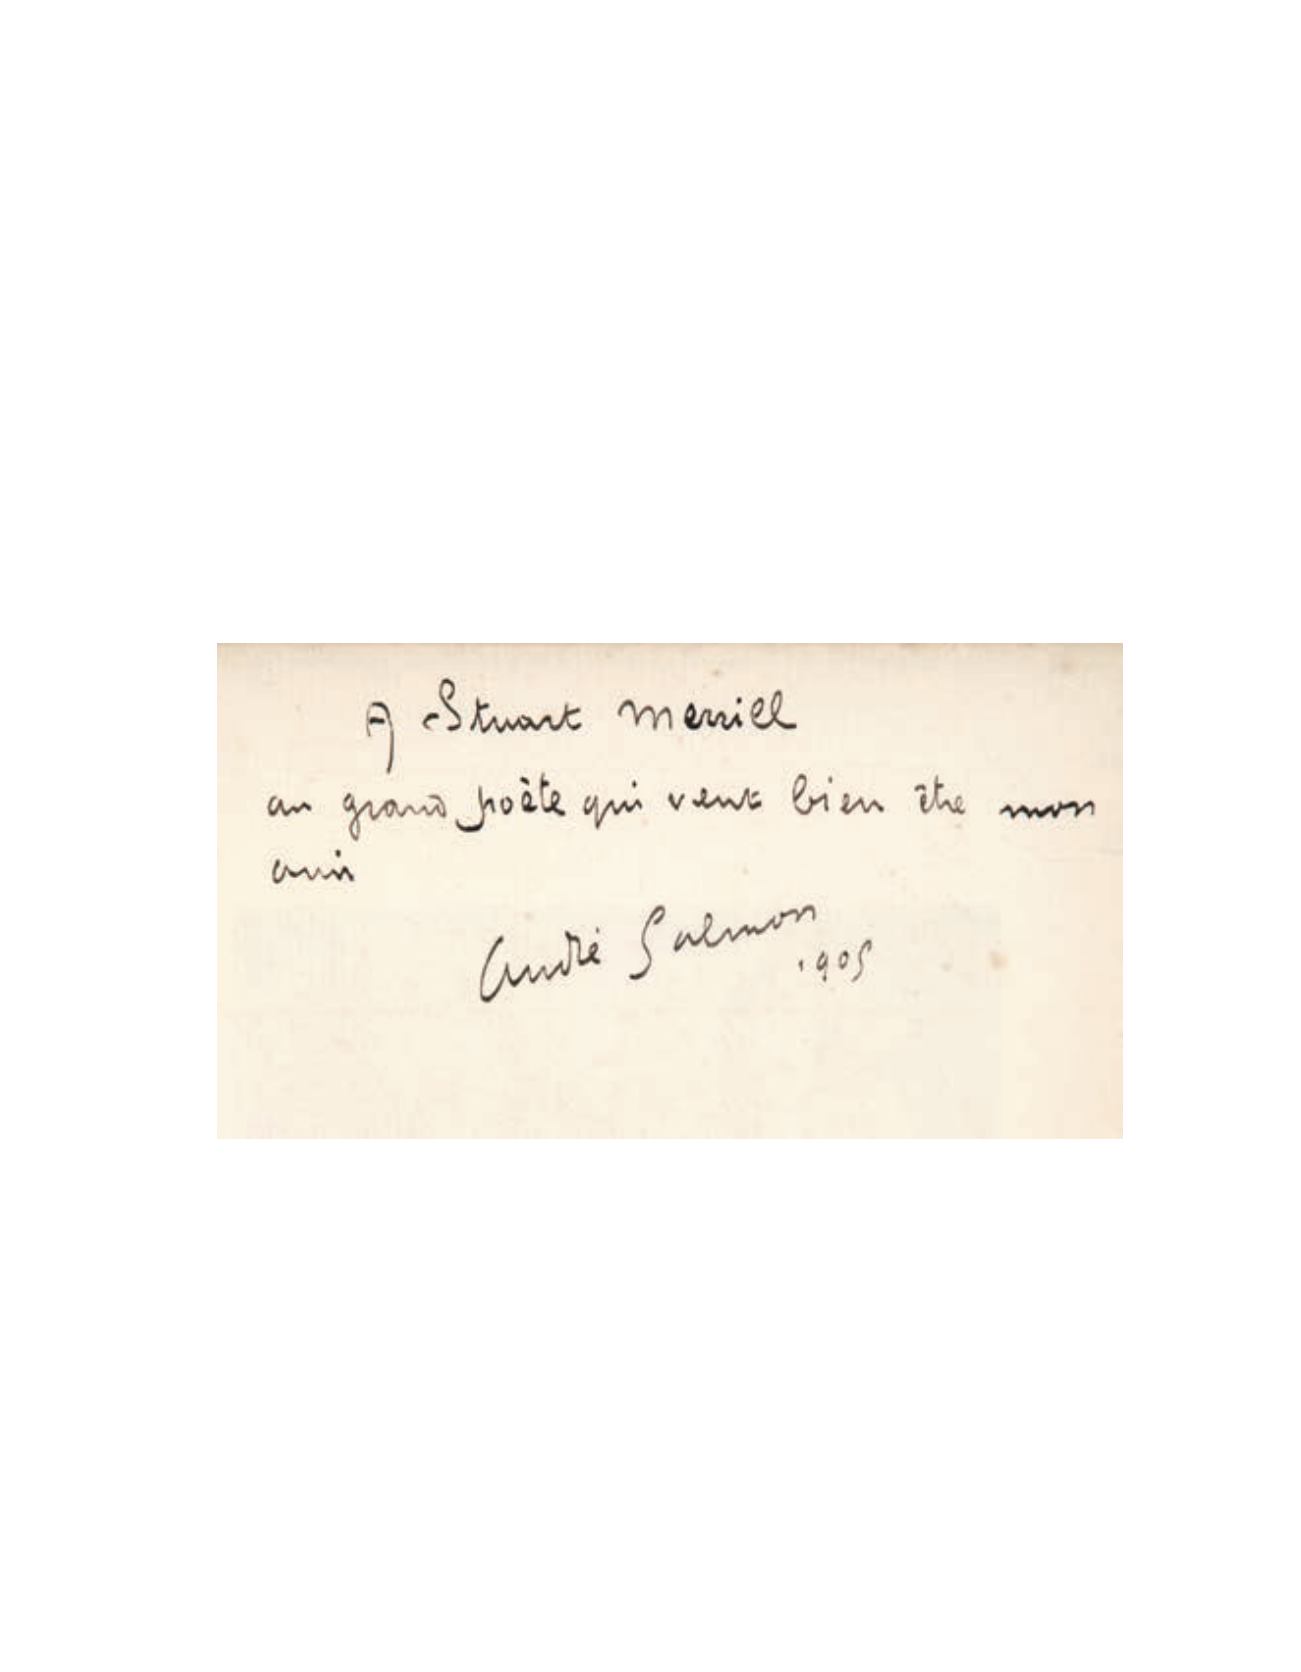 A Stuart Merrill
au grand poète qui veut bien être mon
ami
André Salmon
1905